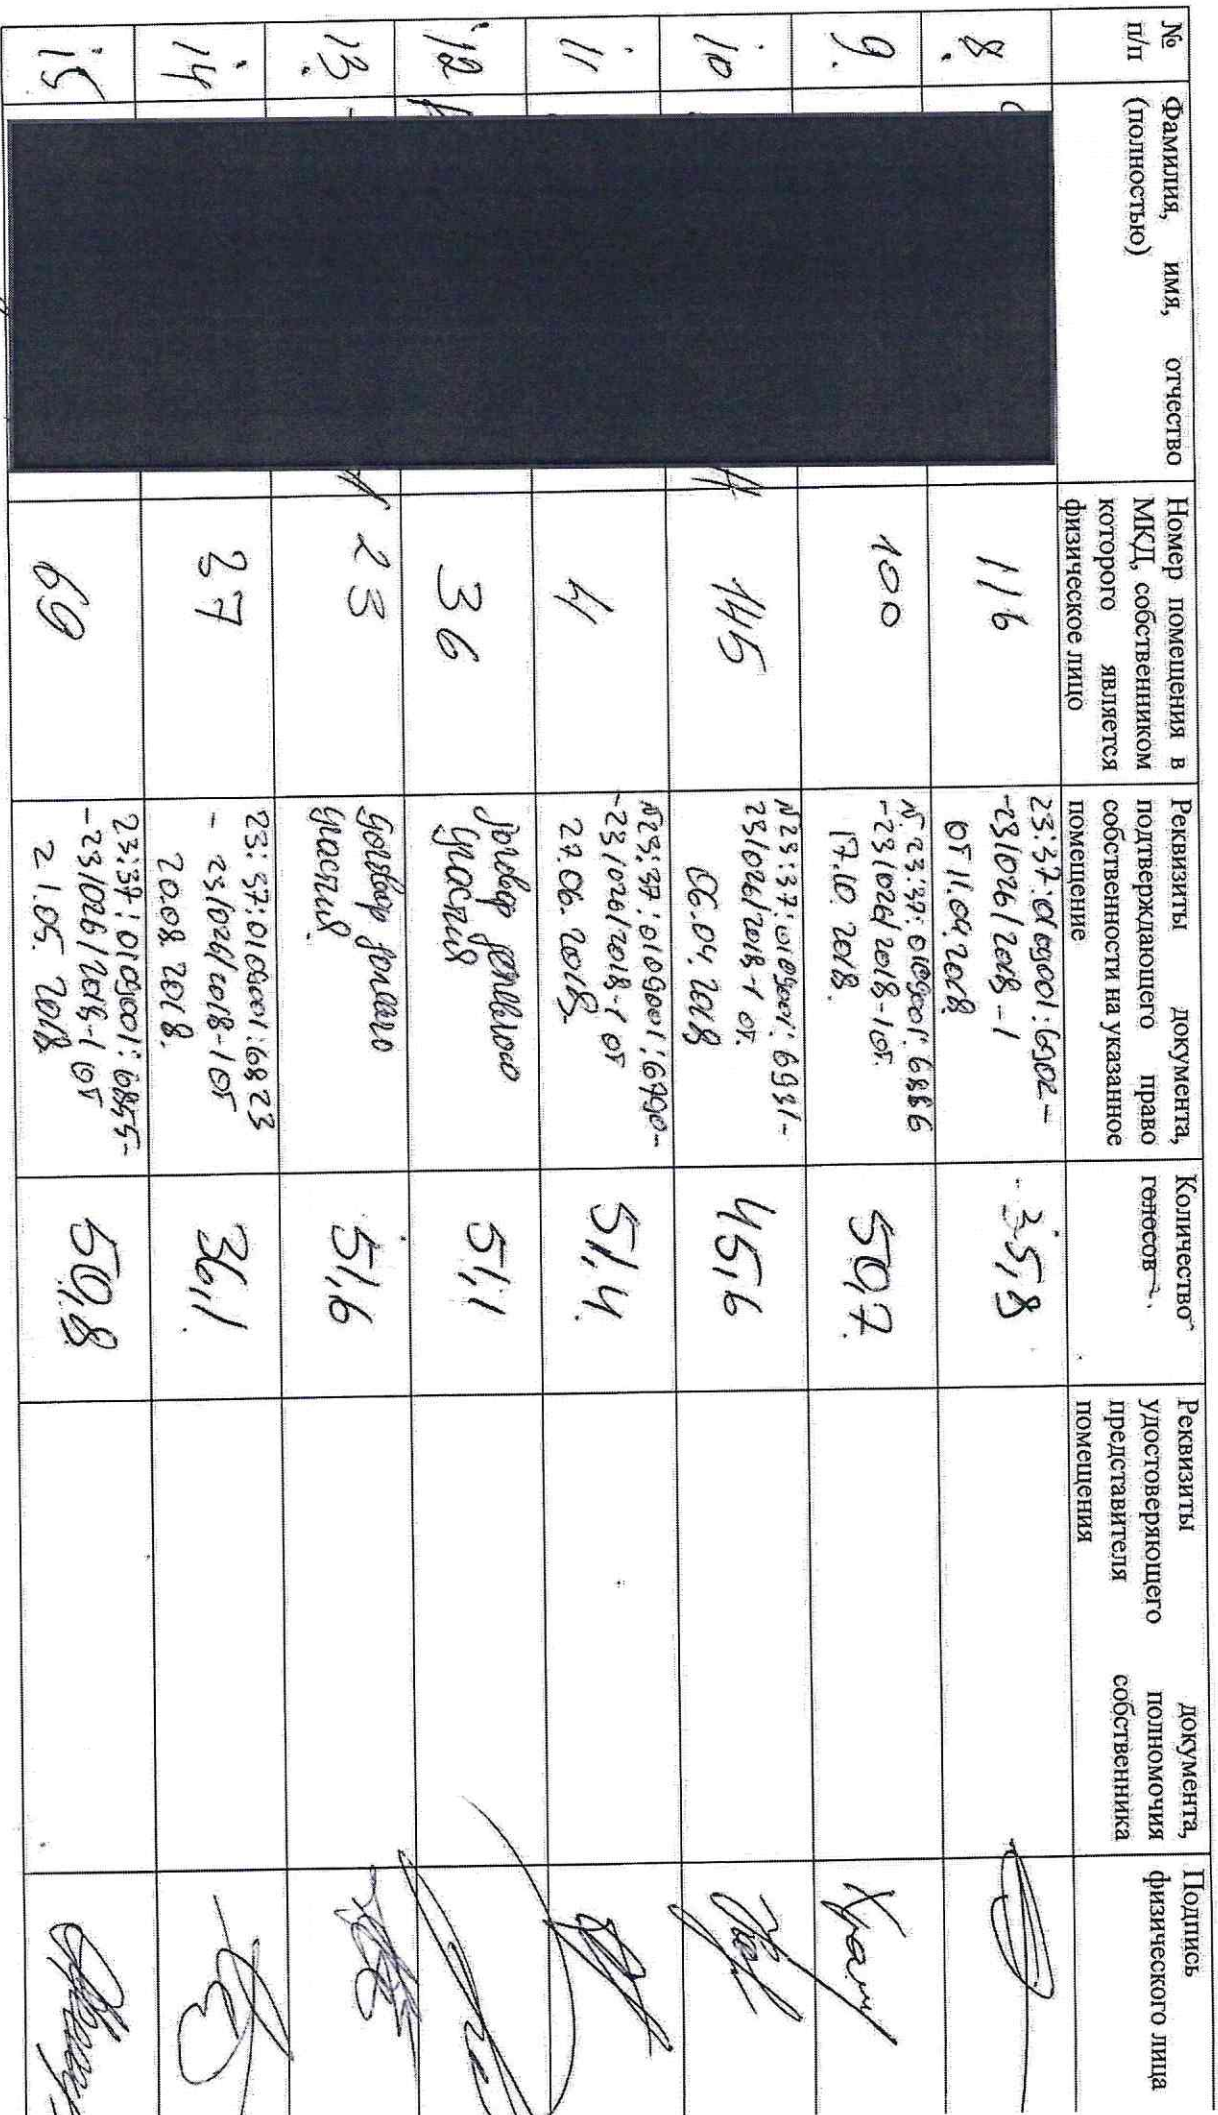 № п/п
Фамилия, имя, отчество (полностью)
Номер помещения в МКД, собственником которого является физическое лицо
Реквизиты документа, подтверждающего право собственности на указанное помещение
Количество голосов
Реквизиты документа, удостоверяющего полномочия представителя собственника помещения
Подпись физического лица
8.
116
23:37:0109001:6902-
-23/026/2018-1
от 11.09.2018
35,8
9.
100
№ 23:37:0109001:6886
-23/026/2018-1 от.
17.10.2018.
50,7
10
145
№23:37:0109001:6931-
23/026/2018-1 от.
06.04.2018
45,6
11
4
№23:37:0109001:6790-
-23/026/2018-1 от
27.06.2018
51,4
12
36
договор долевого
участия
51,1
13.
23
договор долевого
участия.
51,6
14
27
23:37:0109001:6823
- 23/026/2018-1 от
20.08.2018.
36,1
15
69
23:37:0109001:6855-
-23/026/2018-1 от
21.05.2018
50,8